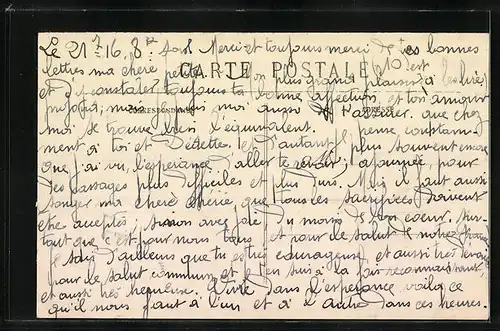 Le 21 7 16, 8 soir Merci et toujours merci de tes bonnes
lettres ma chère petite. C'est mon plus grand plaisir à les lire
CARTE POSTALE
et d'y constater toujours ta bonne affection et ton amour
CORRESPONDANCE
ADRESSE
moi aussi t'assurer, que chez
moi se trouve bien l'équivalent. Je pense constam-
ment à toi et Dédette. Et d'autant plus souvent encore
que j'ai vu, l'espérance d'aller te revoir, ajournée pour
des passages plus difficiles et plus durs. Mais il faut aussi
songer ma chère chérie que tous les sacrifices doivent
être acceptés, sinon avec joie du moins de bon coeur, sur-
tout que c'est pour nous tous et pour le salut de notre France
Je sais d'ailleurs que tu es très courageuse et aussi très
pour le salut commun et j'en suis à la fois reconnaissant
et aussi très heureux. Vivre dans l'espérance voilà ce
qu'il nous faut à l'un et à l'autre dans ces heures.